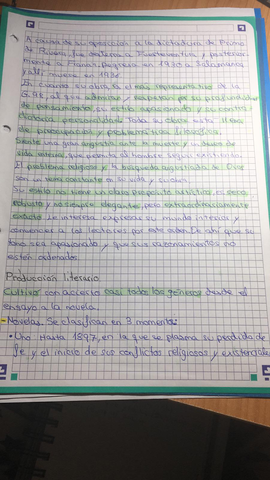 A causa de su oposición a la dictadura de Primo
de Rivera, fue a Fuerteventura y posterior-
mente a Francia. Regresa en 1930 a Salamanca
y allí muere en 1936.
En cuanto su obra, es el más representativo de la
G. 98, al que admiran y respetan por su profundidad
de pensamiento, su estilo apasionado y su contra-
dictoria personalidad. Toda su obra está llena
de preocupación y problemática filosófica.
Siente una gran angustia ante la muerte y un deseo de
vida eterna, que permita al hombre seguir existiendo.
El problema religioso y la búsqueda angustiada de Dios
son un tema constante en su vida y su obra.
Su estilo no tiene un claro propósito artístico, es denso
robusto y no siempre elegante, pero extraordinariamente
exacto. Le interesa expresar su mundo interior y
convencer a los lectores por este orden. De ahí que su
tono sea apasionado y que sus razonamientos no
estén ordenados.
Producción literaria
Cultivó con acierto casi todos los géneros desde el
ensayo a la novela.
- Novelas. Se clasifican en 3 momentos:
• Uno hasta 1897, en la que se plasma su perdida de
fe y el inicio de sus conflictos religiosos y existenciales